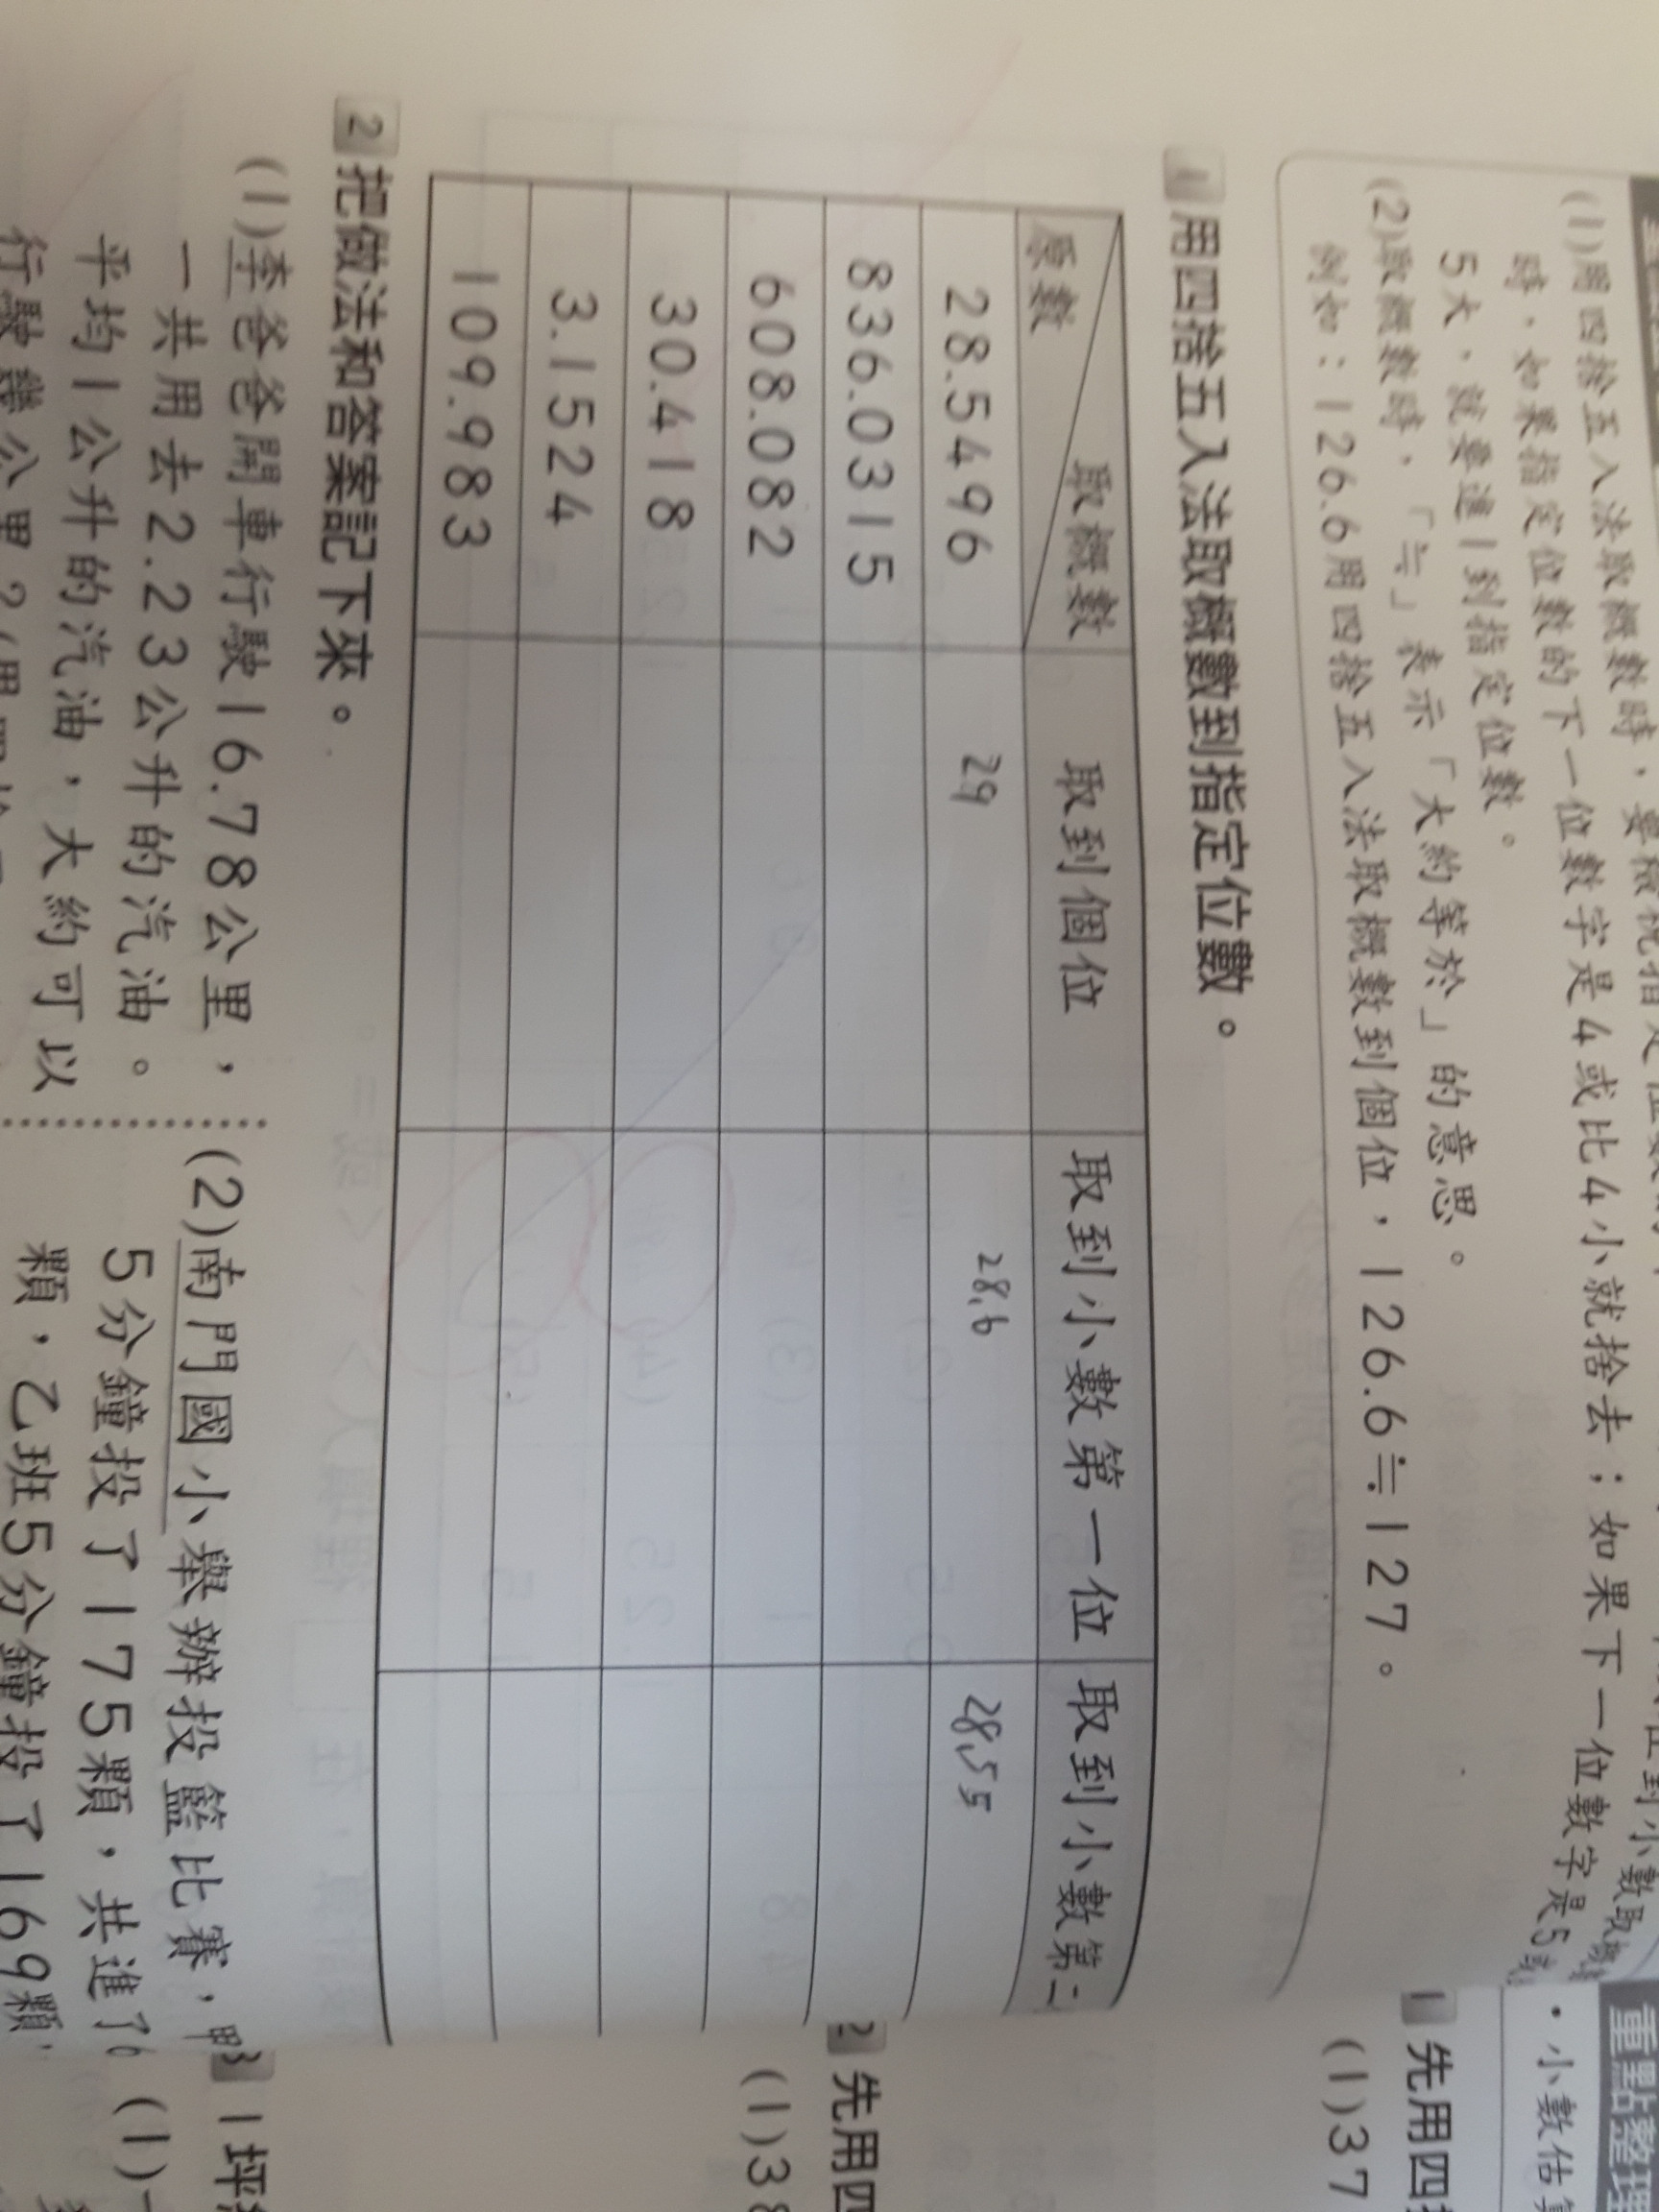 (1)用四捨五入法取概數時，要檢視指定位數的
時，如果指定位數的下一位數字是4或比4小就捨去；如果下一位數字是5或
5大，就要進1到指定位數。
(2)取概數時，「≒」表示「大約等於」的意思。
例如：126.6用四捨五入法取概數到個位，126.6≒127。
1 用四捨五入法取概數到指定位數。
取概數 取到個位 取到小數第一位 取到小數第二
原數
28.5496 29 28.6 28.55
836.0315
608.082
30.418
3.1524
109.983
2 把做法和答案記下來。
(1)李爸爸開車行駛16.78公里，
一共用去2.23公升的汽油。
平均1公升的汽油，大約可以
行駛幾公里？(用四捨
(2)南門國小舉辦投籃比賽，甲
5分鐘投了175顆，共進了6
顆，乙班5分鐘投了169顆，
重點整理
• 小數估算
1 先用四
(1)37
2 先用四
(1)38
3 1坪
(1)